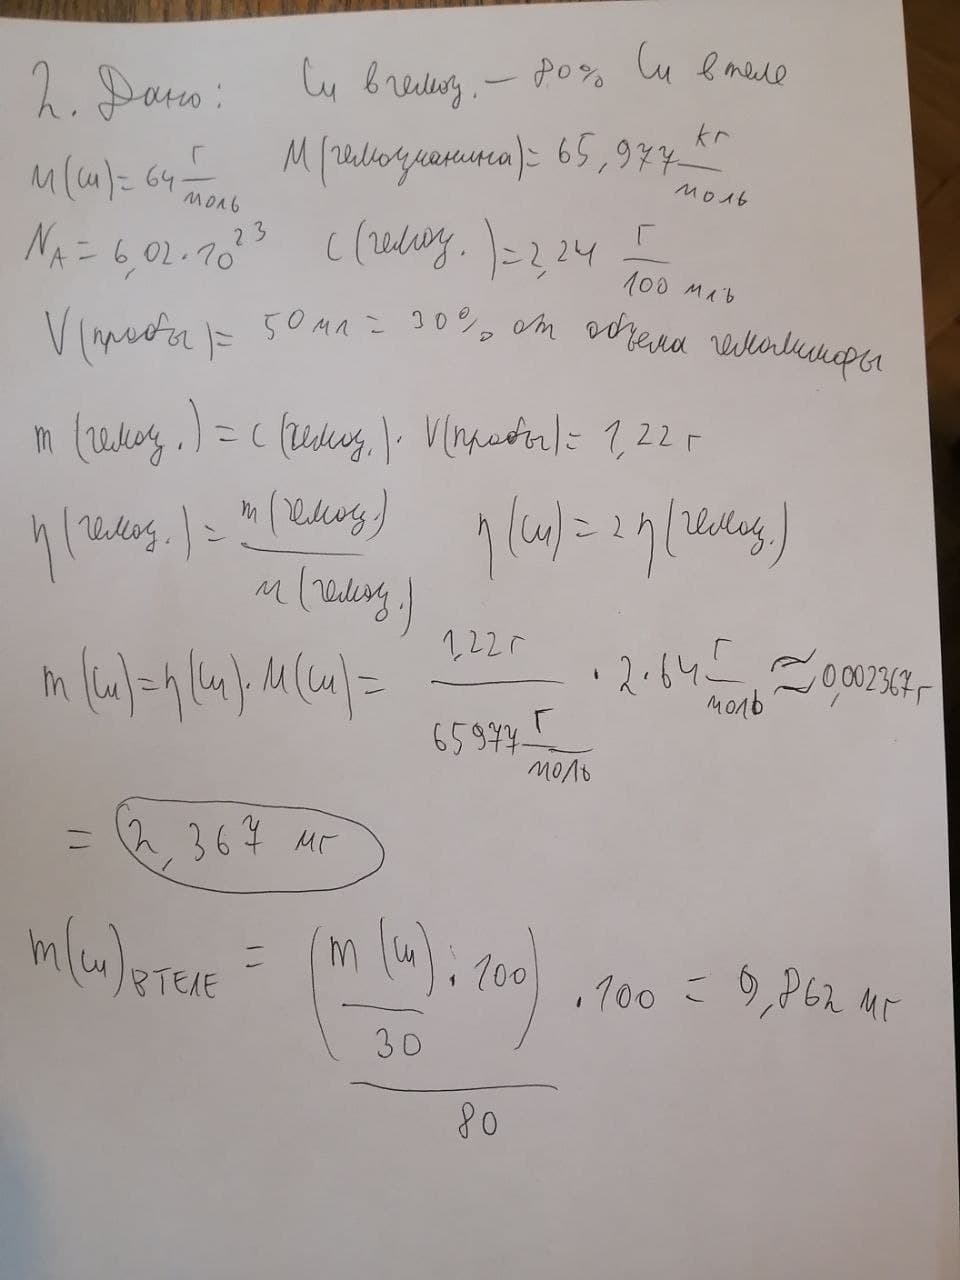 2. Дано: Cu в гемоц. – 80% Cu в теле
M(Cu)=64 г/моль M(гемоцианина)=65,977 кг/моль
N_A=6,02·10^23 C(гемоц.)=2,24 г/100 мль
V(пробы)= 50 мл = 30% от объема гемолимфы
m(гемоц.)=C(гемоц.)·V(пробы)=1,22 г
η(гемоц.)= m(гемоц.)/M(гемоц.) η(Cu)=2η(гемоц.)
m(Cu)=η(Cu)·M(Cu)= 1,22 г/65977 г/моль · 2·64 г/моль ≈ 0,002367 г
= 2,367 мг
m(Cu) В ТЕЛЕ = (m(Cu)/30 · 100)/80 · 100 = 9,862 мг